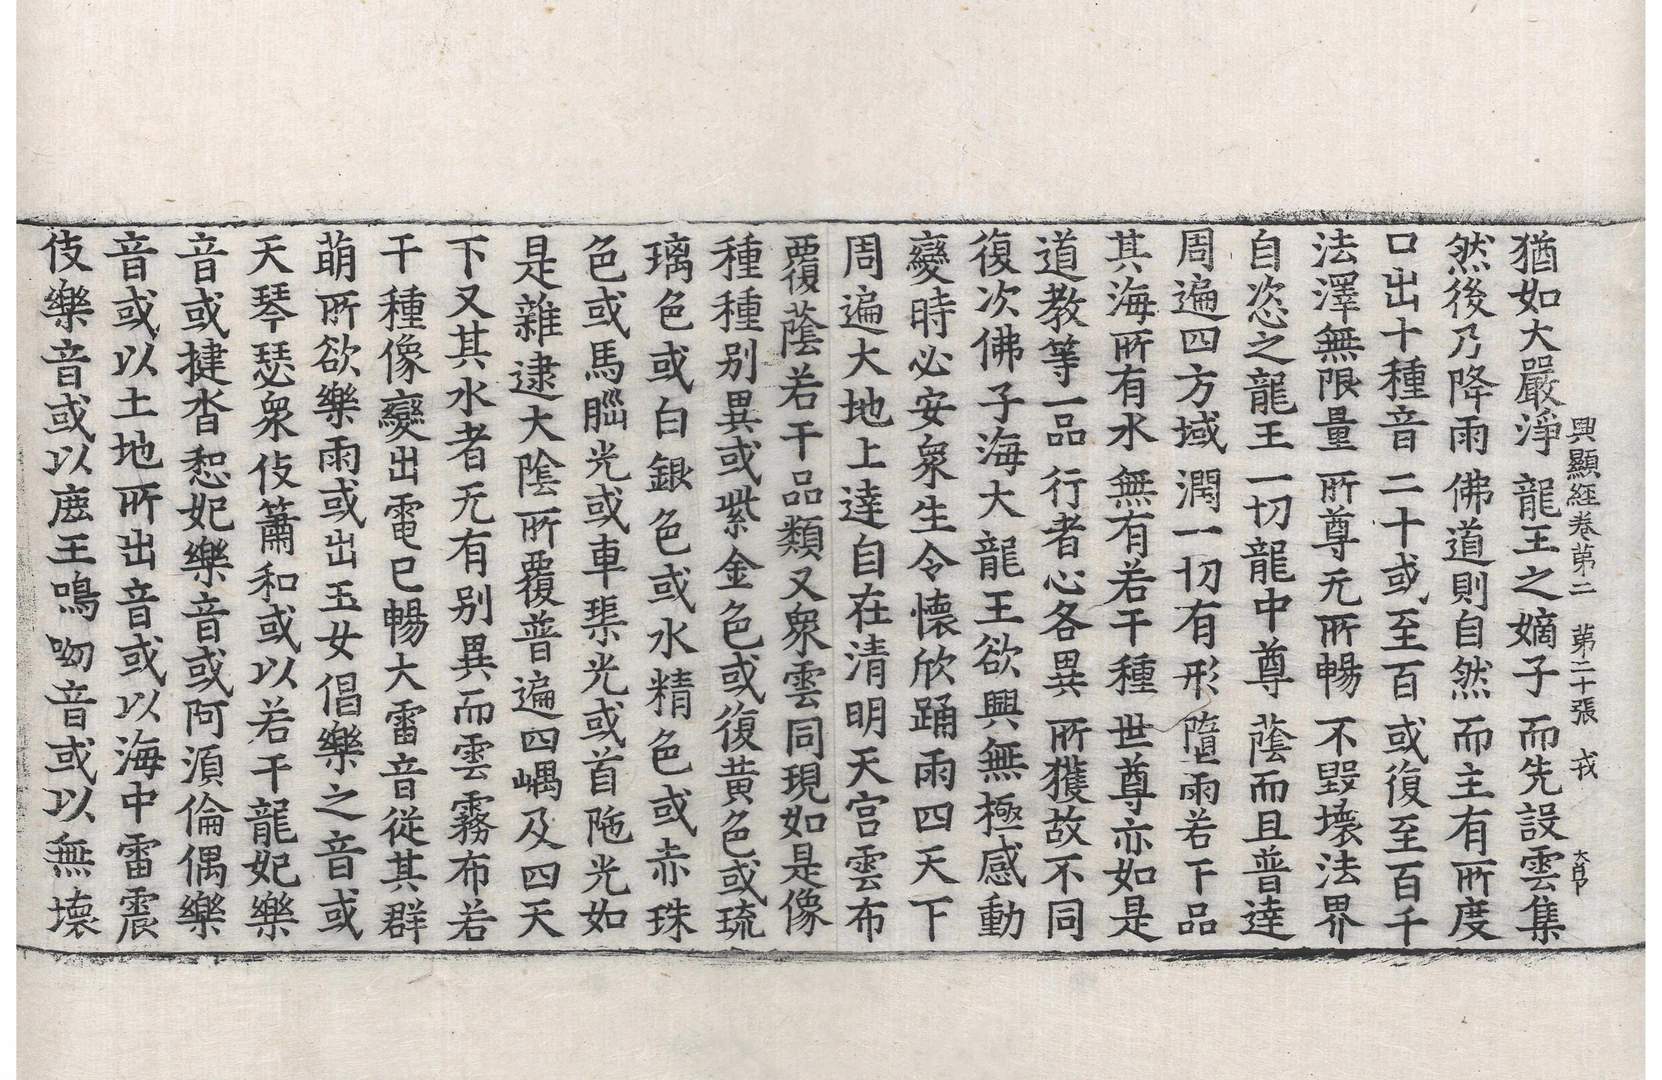 興顯経卷苐二　苐二十張　㦯　大卽
猶如大嚴淨　龍王之嫡子　而先設雲集
然後乃降雨　佛道則自然　而主有所度
口出十種音　二十或至百　或復至百千
法澤無限量　所尊无所暢　不毀壞法界
自恣之龍王　一切龍中尊　蔭而且普達
周遍四方域　潤一切有形　墮雨若干品
其海所有水　無有若干種　世尊亦如是
道教等一品　行者心各異　所獲故不同
復次佛子海大龍王欲興無極感動
變時必安衆生令懷欣踊雨四天下
周遍大地上達自在清明天宮雲布
覆蔭若干品類又衆雲同現如是像
種種別異或紫金色或復黃色或琉
璃色或白銀色或水精色或赤珠
色或馬腦光或車𤦲光或首陁光如
是雜逮大陰所覆普遍四嵎及四天
下又其水者无有別異而雲霧布若
干種像變出電已暢大雷音從其群
萌所欲樂雨或出玉女倡樂之音或
天琴瑟衆伎簫和或以若干龍妃樂
音或揵沓惒妃樂音或阿須倫偶樂
音或以土地所出音或以海中雷震
伎樂音或以鹿王鳴吻音或以無壞